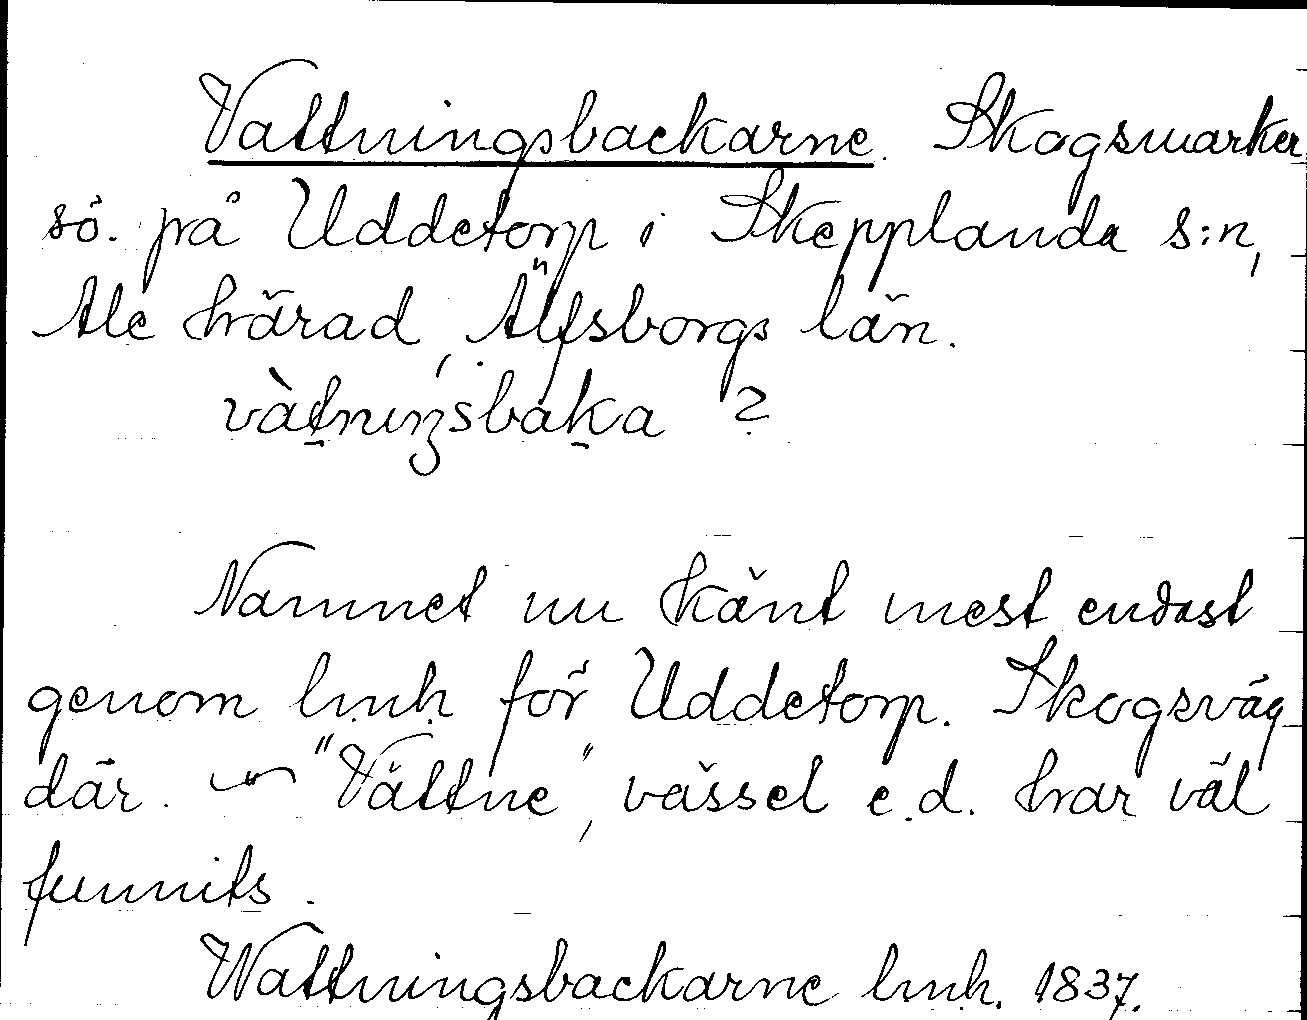 Vattningsbackarne. Skogsmarker
sö. på Uddetorp i Skepplanda s:n,
Ale härad, Älfsborgs län.
vàtnıŋsbaka ?
Namnet nu känt mest endast
genom lmh för Uddetorp. Skogsväg
där. — "Vättne", vässel e.d. har väl
funnits.
Wattningsbackarne lmh. 1837.